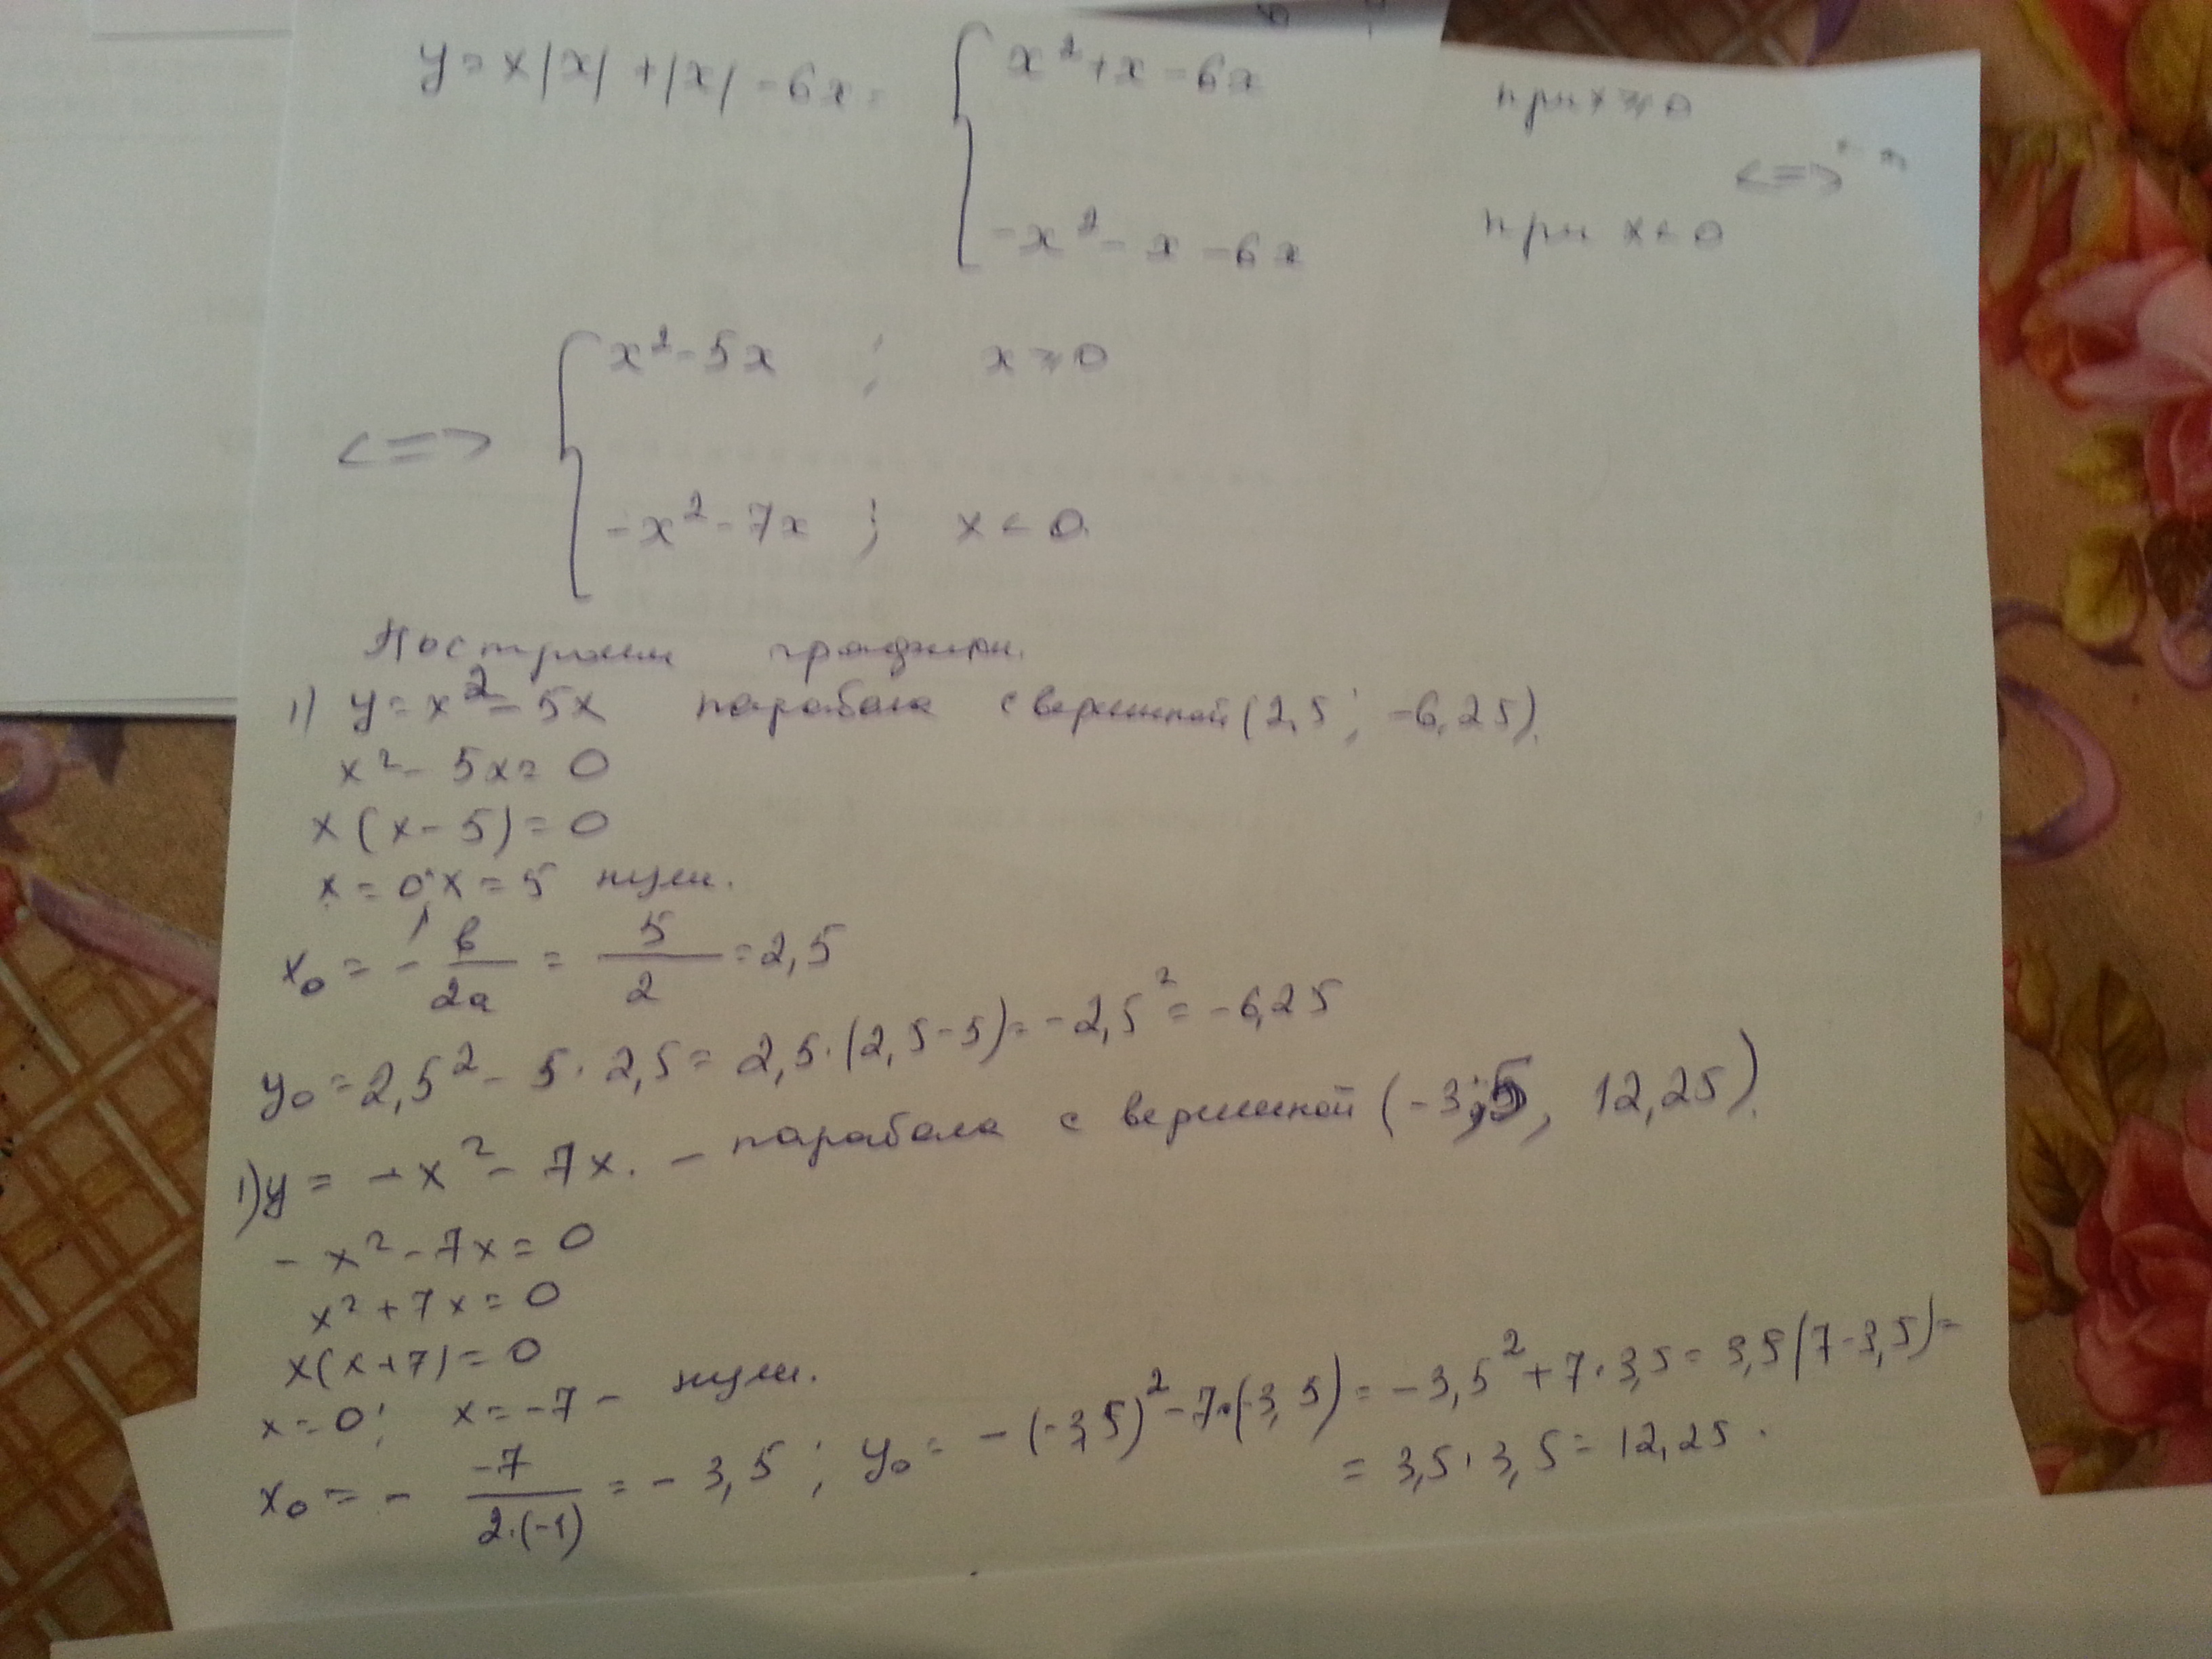 y = x|x| + |x| - 6x = { x² + x - 6x при x ≥ 0
- x² - x - 6x при x < 0 <=>
<=> { x² - 5x ; x ≥ 0
- x² - 7x ; x < 0.
Построим графики.
1) y = x² - 5x парабола с вершиной (2,5 ; -6,25).
x² - 5x = 0
x (x - 5) = 0
x = 0; x = 5 нули.
x₀ = - в/2a = 5/2 = 2,5
y₀ = 2,5² - 5 · 2,5 = 2,5 · (2,5 - 5) = - 2,5² = - 6,25
1) y = - x² - 7x. - парабола с вершиной (-3,5, 12,25).
- x² - 7x = 0
x² + 7x = 0
x(x+7) = 0
x = 0; x = -7 - нули.
x₀ = - -7/2·(-1) = - 3,5 ; y₀ = - (-3,5)² - 7·(-3,5) = - 3,5² + 7 · 3,5 = 3,5 (7 - 3,5) =
= 3,5 · 3,5 = 12,25 .